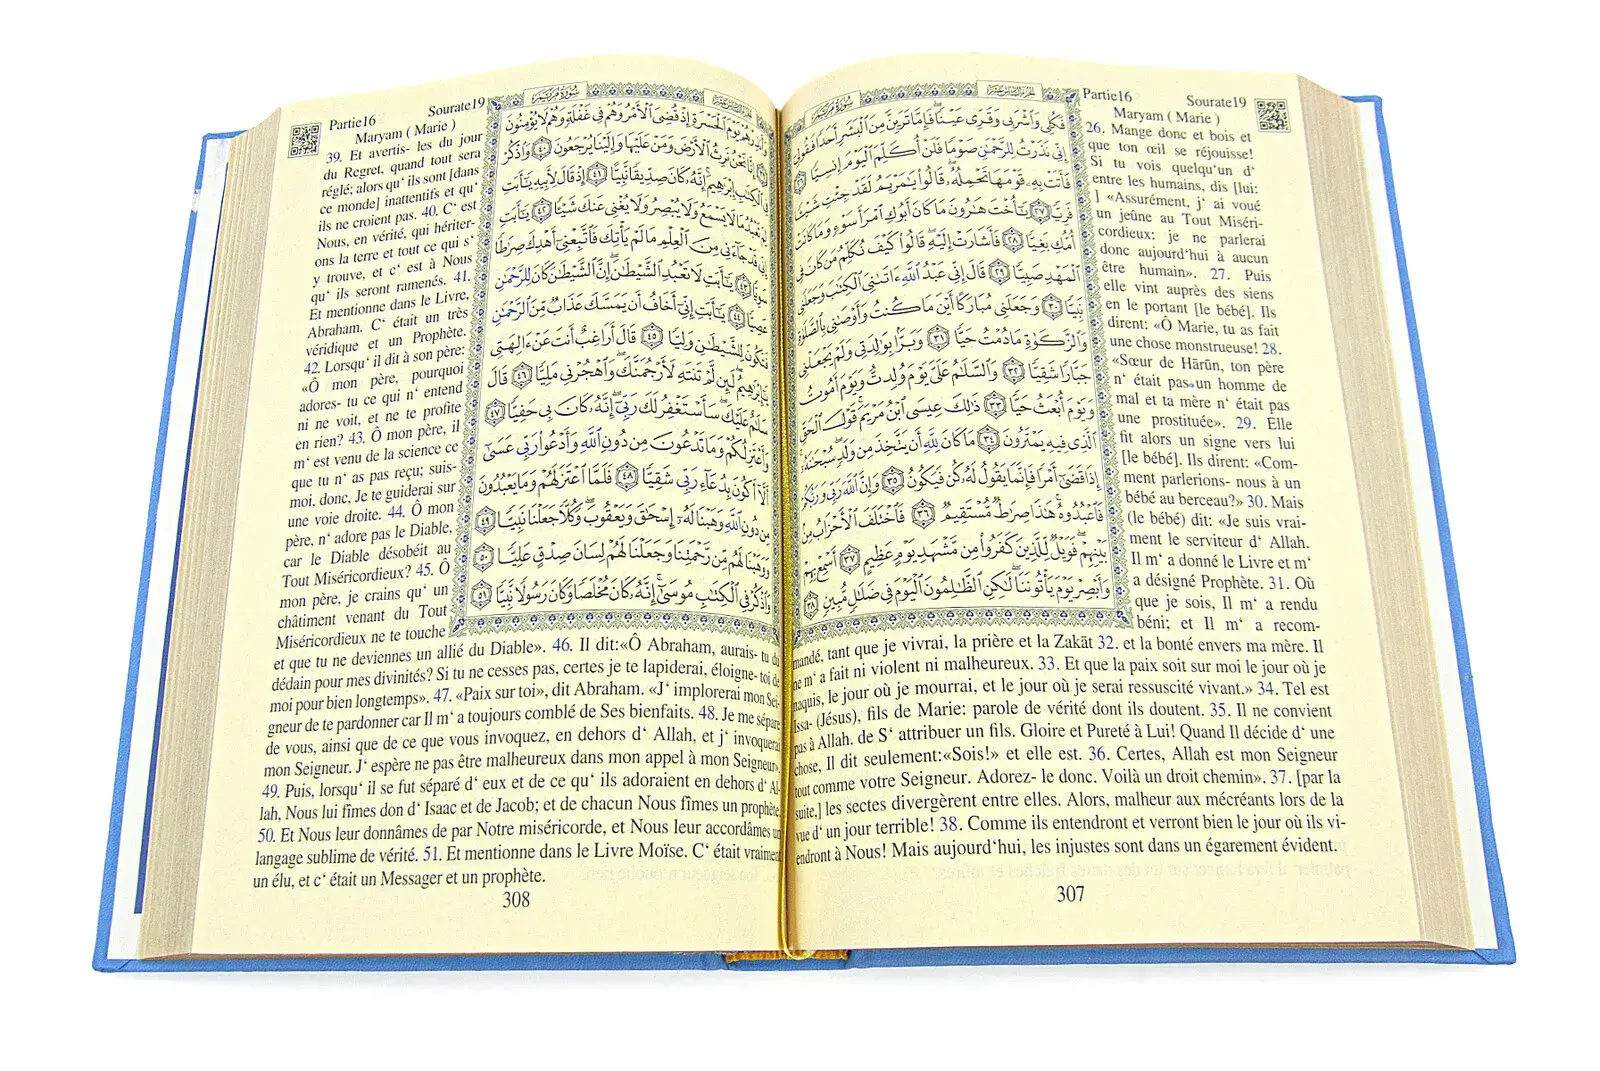 Partie16 Sourate19
Maryam ( Marie )
سُورَةُ مَرْيَمَ
الجزء السادس عشر
فَكُلِي وَاشْرَبِي وَقَرِّي عَيْنًا فَإِمَّا تَرَيِنَّ مِنَ الْبَشَرِ أَحَدًا فَقُولِي
إِنِّي نَذَرْتُ لِلرَّحْمَٰنِ صَوْمًا فَلَنْ أُكَلِّمَ الْيَوْمَ إِنسِيًّا ٢٦
فَأَتَتْ بِهِ قَوْمَهَا تَحْمِلُهُ قَالُوا يَا مَرْيَمُ لَقَدْ جِئْتِ شَيْئًا
فَرِيًّا ٢٧ يَا أُخْتَ هَارُونَ مَا كَانَ أَبُوكِ امْرَأَ سَوْءٍ وَمَا كَانَتْ
أُمُّكِ بَغِيًّا ٢٨ فَأَشَارَتْ إِلَيْهِ قَالُوا كَيْفَ نُكَلِّمُ مَن كَانَ فِي
الْمَهْدِ صَبِيًّا ٢٩ قَالَ إِنِّي عَبْدُ اللَّهِ آتَانِيَ الْكِتَابَ وَجَعَلَنِي
نَبِيًّا ٣٠ وَجَعَلَنِي مُبَارَكًا أَيْنَ مَا كُنتُ وَأَوْصَانِي بِالصَّلَاةِ
وَالزَّكَاةِ مَا دُمْتُ حَيًّا ٣١ وَبَرًّا بِوَالِدَتِي وَلَمْ يَجْعَلْنِي
جَبَّارًا شَقِيًّا ٣٢ وَالسَّلَامُ عَلَيَّ يَوْمَ وُلِدتُّ وَيَوْمَ أَمُوتُ
وَيَوْمَ أُبْعَثُ حَيًّا ٣٣ ذَٰلِكَ عِيسَى ابْنُ مَرْيَمَ قَوْلَ الْحَقِّ
الَّذِي فِيهِ يَمْتَرُونَ ٣٤ مَا كَانَ لِلَّهِ أَن يَتَّخِذَ مِن وَلَدٍ سُبْحَانَهُ
إِذَا قَضَىٰ أَمْرًا فَإِنَّمَا يَقُولُ لَهُ كُن فَيَكُونُ ٣٥ وَإِنَّ اللَّهَ رَبِّي وَرَبُّكُمْ
فَاعْبُدُوهُ هَٰذَا صِرَاطٌ مُّسْتَقِيمٌ ٣٦ فَاخْتَلَفَ الْأَحْزَابُ مِن
بَيْنِهِمْ فَوَيْلٌ لِّلَّذِينَ كَفَرُوا مِن مَّشْهَدِ يَوْمٍ عَظِيمٍ ٣٧ أَسْمِعْ بِهِمْ
وَأَبْصِرْ يَوْمَ يَأْتُونَنَا لَٰكِنِ الظَّالِمُونَ الْيَوْمَ فِي ضَلَالٍ مُّبِينٍ ٣٨
26. Mange donc et bois et
que ton œil se réjouisse!
Si tu vois quelqu'un d'
entre les humains, dis [lui:
] «Assurément, j' ai voué
un jeûne au Tout Miséri-
cordieux: je ne parlerai
donc aujourd'hui à aucun
être humain». 27. Puis
elle vint auprès des siens
en le portant [le bébé]. Ils
dirent: «Ô Marie, tu as fait
une chose monstrueuse! 28.
«Sœur de Hārūn, ton père
n' était pas un homme de
mal et ta mère n' était pas
une prostituée». 29. Elle
fit alors un signe vers lui
[le bébé]. Ils dirent: «Com-
ment parlerions- nous à un
bébé au berceau?» 30. Mais
(le bébé) dit: «Je suis vrai-
ment le serviteur d' Allah.
Il m' a donné le Livre et m'
a désigné Prophète. 31. Où
que je sois, Il m' a rendu
béni; et Il m' a recom-
mandé, tant que je vivrai, la prière et la Zakāt 32. et la bonté envers ma mère. Il
ne m' a fait ni violent ni malheureux. 33. Et que la paix soit sur moi le jour où je
naquis, le jour où je mourrai, et le jour où je serai ressuscité vivant.» 34. Tel est
Issa- (Jésus), fils de Marie: parole de vérité dont ils doutent. 35. Il ne convient
pas à Allah. de S' attribuer un fils. Gloire et Pureté à Lui! Quand Il décide d' une
chose, Il dit seulement:«Sois!» et elle est. 36. Certes, Allah est mon Seigneur
tout comme votre Seigneur. Adorez- le donc. Voilà un droit chemin». 37. [par la
suite,] les sectes divergèrent entre elles. Alors, malheur aux mécréants lors de la
vue d' un jour terrible! 38. Comme ils entendront et verront bien le jour où ils vi-
endront à Nous! Mais aujourd'hui, les injustes sont dans un égarement évident.
307
Partie16 Sourate19
Maryam ( Marie )
سُورَةُ مَرْيَمَ
الجزء السادس عشر
وَأَنذِرْهُمْ يَوْمَ الْحَسْرَةِ إِذْ قُضِيَ الْأَمْرُ وَهُمْ فِي غَفْلَةٍ وَهُمْ لَا يُؤْمِنُونَ
٣٩ إِنَّا نَحْنُ نَرِثُ الْأَرْضَ وَمَنْ عَلَيْهَا وَإِلَيْنَا يُرْجَعُونَ ٤٠ وَاذْكُرْ
فِي الْكِتَابِ إِبْرَاهِيمَ إِنَّهُ كَانَ صِدِّيقًا نَّبِيًّا ٤١ إِذْ قَالَ لِأَبِيهِ يَا أَبَتِ
لِمَ تَعْبُدُ مَا لَا يَسْمَعُ وَلَا يُبْصِرُ وَلَا يُغْنِي عَنكَ شَيْئًا ٤٢ يَا أَبَتِ
إِنِّي قَدْ جَاءَنِي مِنَ الْعِلْمِ مَا لَمْ يَأْتِكَ فَاتَّبِعْنِي أَهْدِكَ صِرَاطًا
سَوِيًّا ٤٣ يَا أَبَتِ لَا تَعْبُدِ الشَّيْطَانَ إِنَّ الشَّيْطَانَ كَانَ لِلرَّحْمَٰنِ
عَصِيًّا ٤٤ يَا أَبَتِ إِنِّي أَخَافُ أَن يَمَسَّكَ عَذَابٌ مِّنَ الرَّحْمَٰنِ
فَتَكُونَ لِلشَّيْطَانِ وَلِيًّا ٤٥ قَالَ أَرَاغِبٌ أَنتَ عَنْ آلِهَتِي
يَا إِبْرَاهِيمُ لَئِن لَّمْ تَنتَهِ لَأَرْجُمَنَّكَ وَاهْجُرْنِي مَلِيًّا ٤٦ قَالَ
سَلَامٌ عَلَيْكَ سَأَسْتَغْفِرُ لَكَ رَبِّي إِنَّهُ كَانَ بِي حَفِيًّا ٤٧
وَأَعْتَزِلُكُمْ وَمَا تَدْعُونَ مِن دُونِ اللَّهِ وَأَدْعُو رَبِّي عَسَىٰ
أَلَّا أَكُونَ بِدُعَاءِ رَبِّي شَقِيًّا ٤٨ فَلَمَّا اعْتَزَلَهُمْ وَمَا يَعْبُدُونَ
مِن دُونِ اللَّهِ وَهَبْنَا لَهُ إِسْحَاقَ وَيَعْقُوبَ وَكُلًّا جَعَلْنَا نَبِيًّا ٤٩
وَوَهَبْنَا لَهُم مِّن رَّحْمَتِنَا وَجَعَلْنَا لَهُمْ لِسَانَ صِدْقٍ عَلِيًّا ٥٠
وَاذْكُرْ فِي الْكِتَابِ مُوسَىٰ إِنَّهُ كَانَ مُخْلَصًا وَكَانَ رَسُولًا نَّبِيًّا ٥١
39. Et avertis- les du jour
du Regret, quand tout sera
réglé; alors qu' ils sont [dans
ce monde] inattentifs et qu'
ils ne croient pas. 40. C' est
Nous, en vérité, qui hériter-
ons la terre et tout ce qui s'
y trouve, et c' est à Nous
qu' ils seront ramenés. 41.
Et mentionne dans le Livre,
Abraham. C' était un très
véridique et un Prophète.
42. Lorsqu' il dit à son père:
«Ô mon père, pourquoi
adores- tu ce qui n' entend
ni ne voit, et ne te profite
en rien? 43. Ô mon père, il
m' est venu de la science ce
que tu n' as pas reçu; suis-
moi, donc, Je te guiderai sur
une voie droite. 44. Ô mon
père, n' adore pas le Diable,
car le Diable désobéit au
Tout Miséricordieux? 45. Ô
mon père, je crains qu' un
châtiment venant du Tout
Miséricordieux ne te touche
et que tu ne deviennes un allié du Diable». 46. Il dit:«Ô Abraham, aurais- tu du
dédain pour mes divinités? Si tu ne cesses pas, certes je te lapiderai, éloigne- toi de
moi pour bien longtemps». 47. «Paix sur toi», dit Abraham. «J' implorerai mon Sei-
gneur de te pardonner car Il m' a toujours comblé de Ses bienfaits. 48. Je me sépare
de vous, ainsi que de ce que vous invoquez, en dehors d' Allah, et j' invoquerai
mon Seigneur. J' espère ne pas être malheureux dans mon appel à mon Seigneur».
49. Puis, lorsqu' il se fut séparé d' eux et de ce qu' ils adoraient en dehors d' Al-
lah, Nous lui fîmes don d' Isaac et de Jacob; et de chacun Nous fîmes un prophète.
50. Et Nous leur donnâmes de par Notre miséricorde, et Nous leur accordâmes un
langage sublime de vérité. 51. Et mentionne dans le Livre Moïse. C' était vraiment
un élu, et c' était un Messager et un prophète.
308